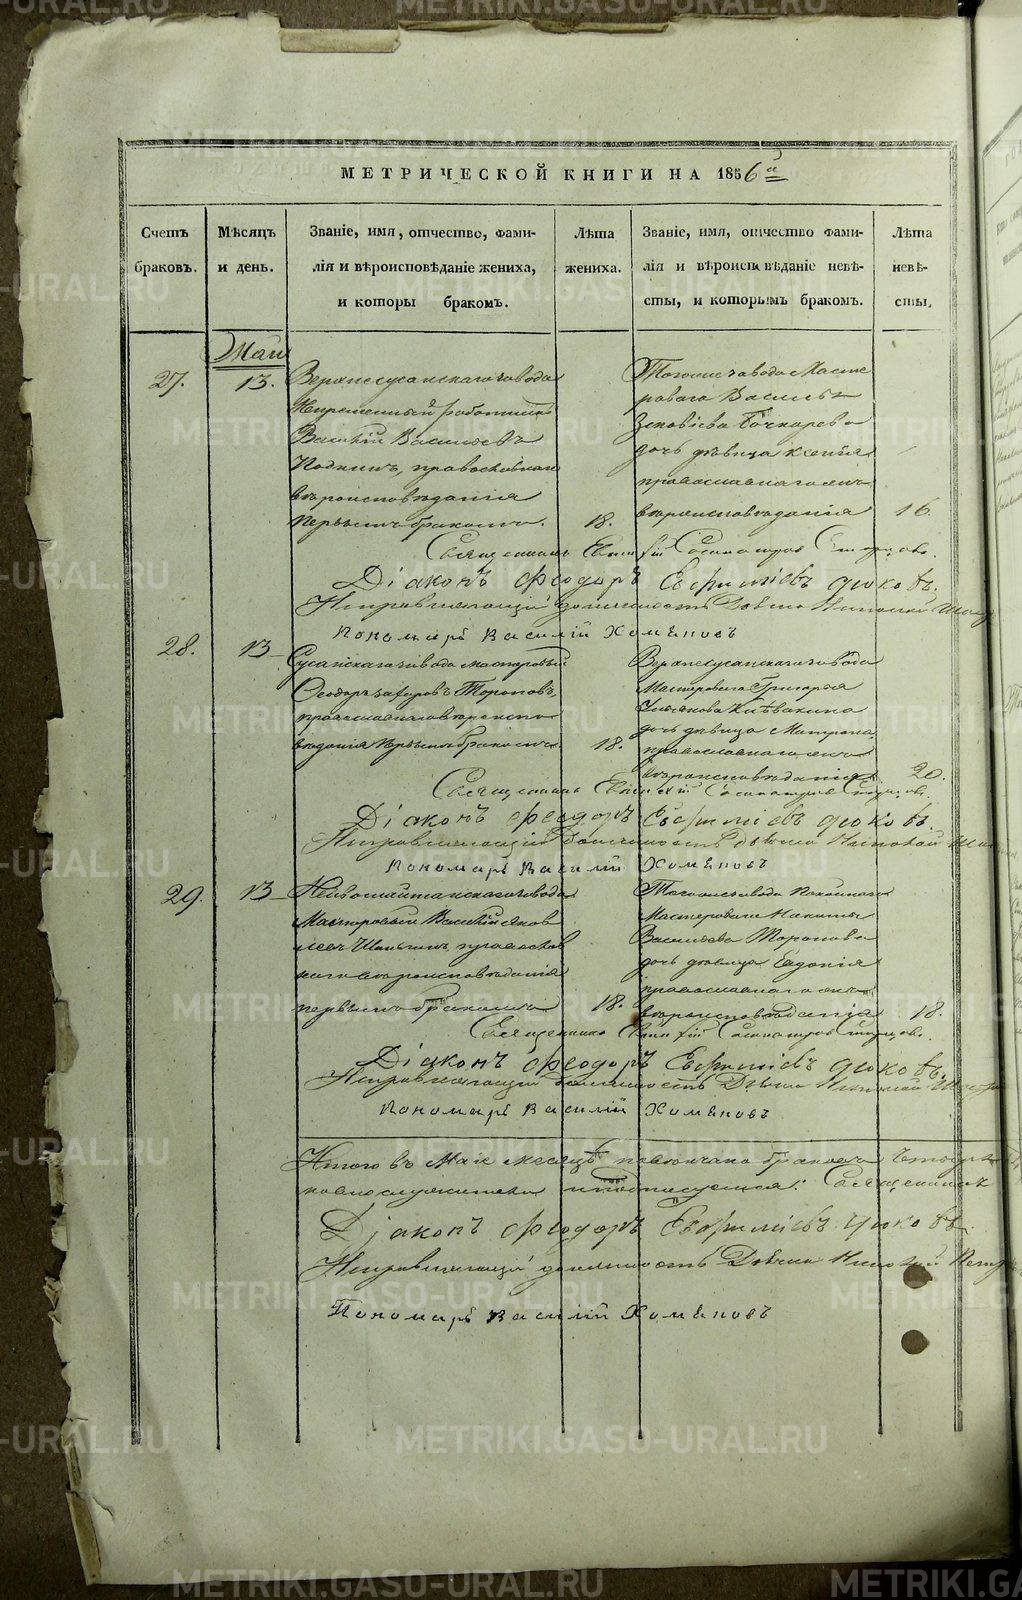 МЕТРИЧЕСКОЙ КНИГИ НА 1856й
Счетъ браковъ.
Мѣсяцъ и день.
Званіе, имя, отчество, фами-
лія и вѣроисповѣданіе жениха,
и которы бракомъ.
Лѣта жениха.
Званіе, имя, отчество фами-
лія и вѣроисп вѣданіе невѣ-
сты, и которымъ бракомъ.
Лѣта невѣ-
сты.
Маій
27.
13.
Верхнесусанскаго завода
Непременный работникъ
Василій Васильевъ
православнаго
вѣроисповѣданія
первымъ бракомъ.
18.
Тогоже завода Масте
роваго Василья
Зиновіева Бочкарева
дочь дѣвица Ксенія
православнаго
вѣроисповѣданія
16.
Священникъ
Діаконъ Феодоръ Евфиміевъ Дюковъ.
Исправляющій должность Дьячка Николай
Пономарь Василій Хоменовъ
28.
13
Сусанскаго завода мастеровый
Феодоръ Тороповъ,
православнаго вѣроиспо
вѣданія первымъ бракомъ.
18.
Верхнесусанскаго завода
Мастероваго Григорья
дочь дѣвица Матрона
православнаго
вѣроисповѣданія
20.
Священникъ
Діаконъ Феодоръ Евфиміевъ Дюковъ.
Исправляющій должность Дьячка Николай
Пономарь Василій Хоменовъ
29.
13
Нейвошайтанскаго завода
Мастеровый Василій Яков
левъ православ
наго вѣроисповѣданія
первымъ бракомъ
18.
Тогоже завода покойнаго
Мастероваго Никиты
Васильева Торопова
дочь дѣвица Евдокія
православнаго
вѣроисповѣданія
18.
Священникъ
Діаконъ Феодоръ Евфиміевъ Дюковъ.
Исправляющій должность Дьячка Николай
Пономарь Василій Хоменовъ
Итого въ Маіе месяцѣ повенчано браковъ
Священникъ
Діаконъ Феодоръ Евфиміевъ Дюковъ.
Исправляющій должность Дьячка Николай
Пономарь Василій Хоменовъ
METRIKI.GASO-URAL.RU